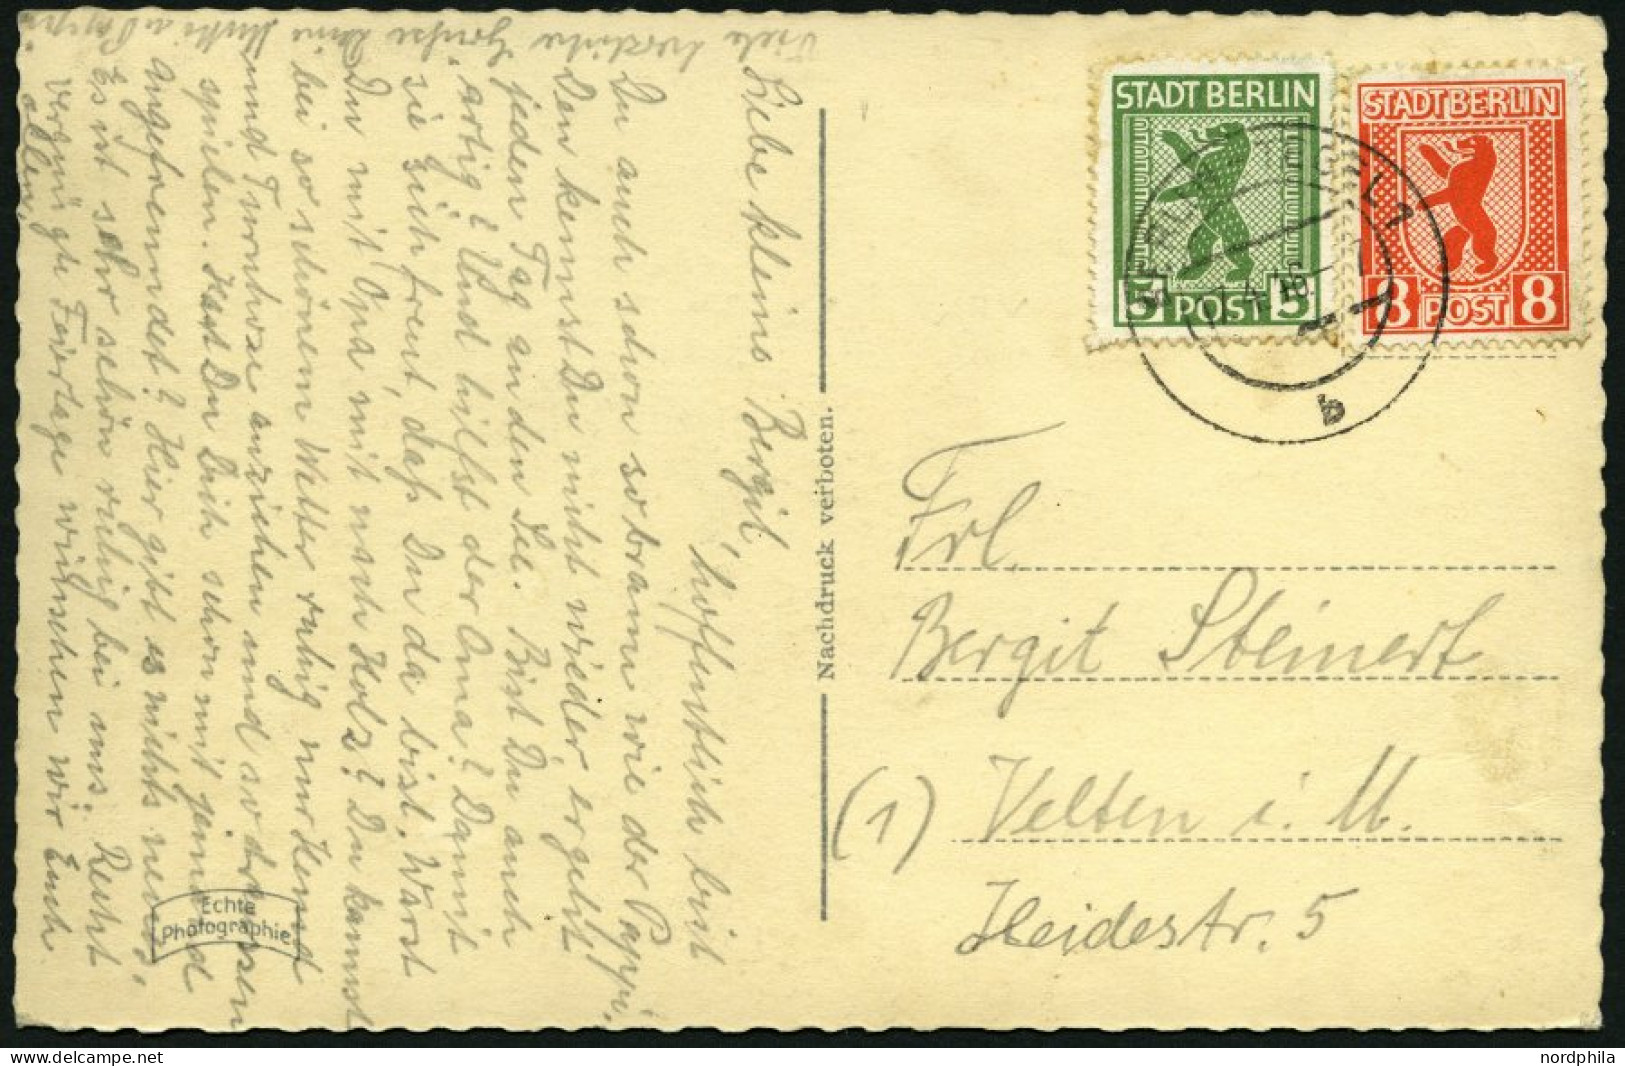 Liebe kleine Bergit,
hoffentlich bist
Du auch schon so braun wie der Pappi.
Den kennst Du nicht wieder, er geht
jeden Tag an den See. Bist Du auch
artig? Und hilfst der Oma? Damit
sie sich freut, daß Du da bist. Warst
Du mit Opa mit nach Holz? Du kannst
bei so schönem Wetter ruhig nur Hemd
und Turnhose anziehen und so draussen
spielen. Hast Du Dich schon mit jemand
angefreundet? Hier gibt es nichts neues,
Es ist sehr schön ruhig bei uns. Recht
vergnügte Feiertage wünschen wir Euch
allen,
Viele herzliche Grüße Deine Mutti u. Pappi.
Echte
Photographie
Nachdruck verboten.
STADT BERLIN
5 POST 5
STADT BERLIN
8 POST 8
17.4.46
b
Frl.
Bergit Steinert
(1) Velten i. M.
Heidestr. 5
nordphila